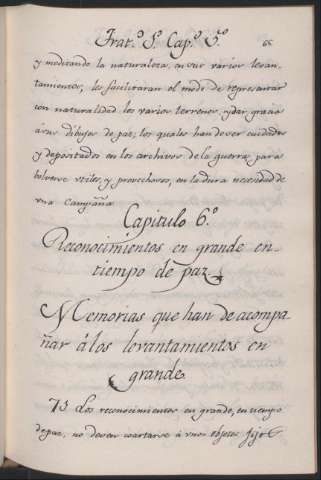 Trat.º 5.º Cap.º 5.º 66
y meditando la naturaleza, en sus varios levan-
tamientos, les facilitaran el modo de representar
con naturalidad los varios terrenos, y dar gracia
á sus dibujos de paz; los quales han de ser cuidados
y depositados en los archivos de la guerra, para
bolverse utiles, y provechosos, en la dura necesidad de
una Campaña.
Capitulo 6.º
Reconocimientos en grande en-
tiempo de paz.
Memorias que han de acompa-
ñar á los levantamientos en
grande.
73 Los reconocimientos en grande, en tiempo
de paz, no deven coartarse á unos objetos fijos